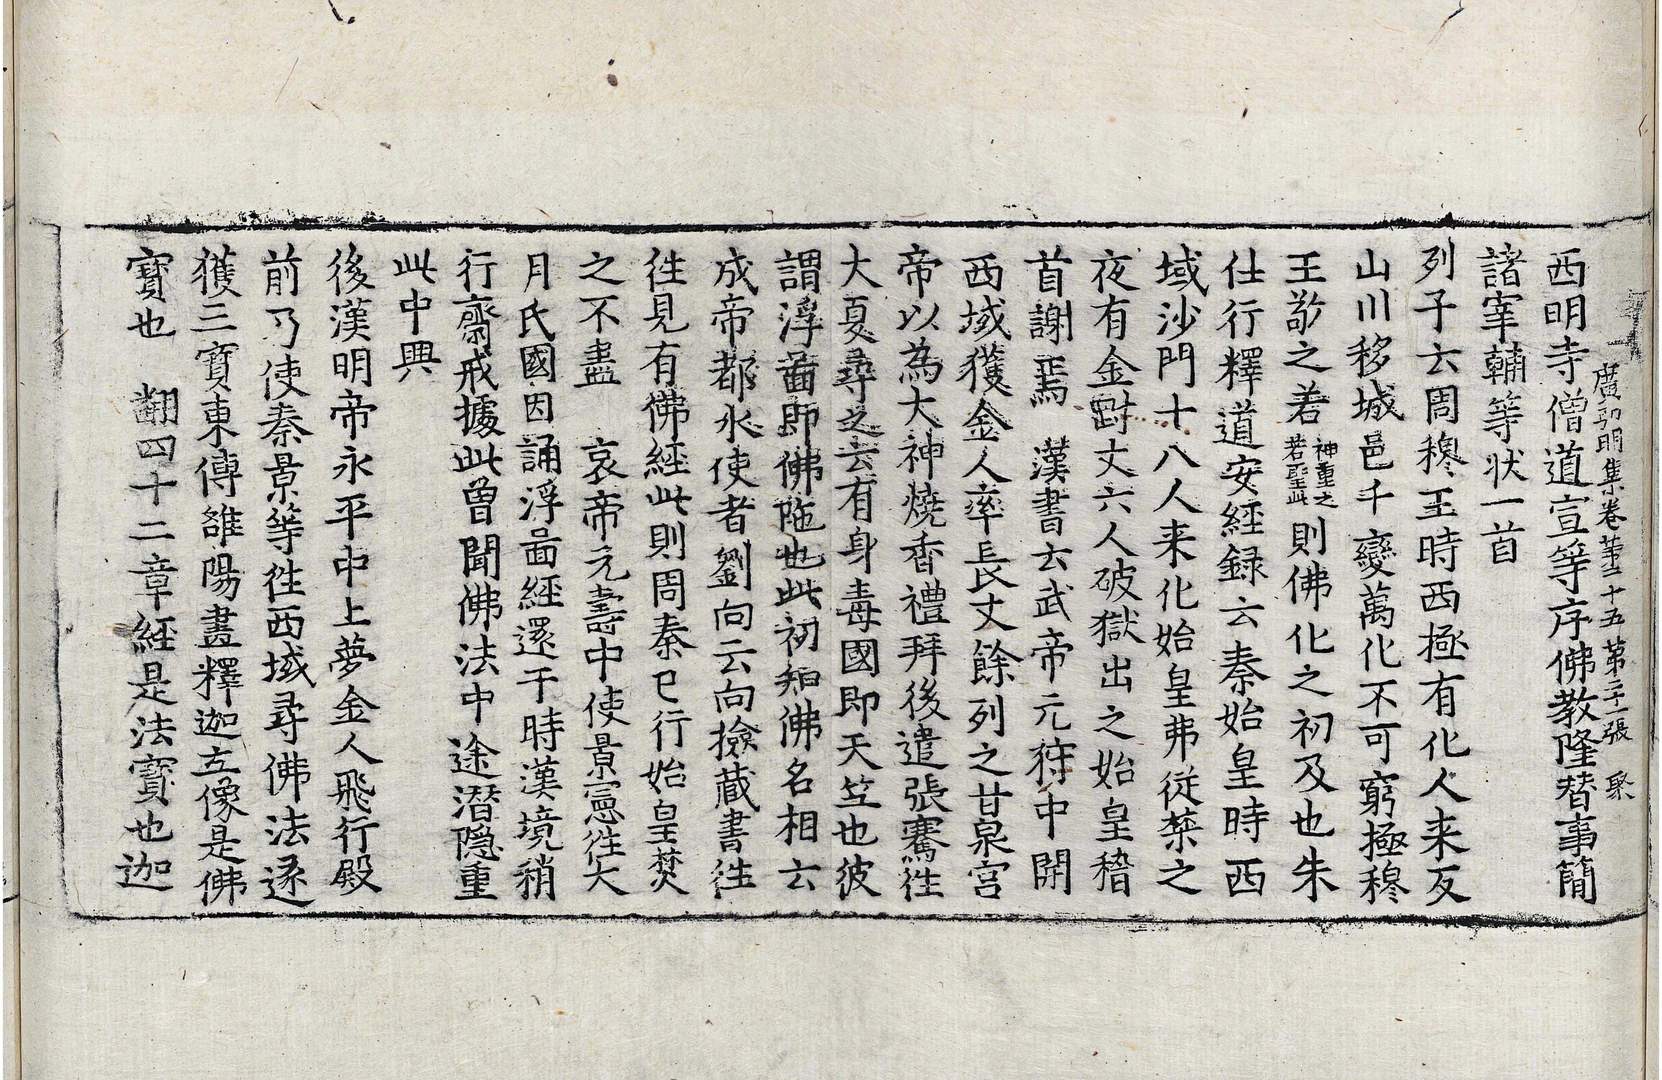 廣弘明集卷第二十五 第二十一張 聚
西明寺僧道宣等序佛教隆替事簡
諸宰輔等狀一首
列子云周穆王時西極有化人来反
山川移城邑千變萬化不可窮極穆
王敬之若神重之若聖此則佛化之初及也朱
仕行釋道安經録云秦始皇時西
域沙門十八人来化始皇弗從禁之
夜有金剛丈六人破獄出之始皇稽
首謝焉 漢書云武帝元狩中開
西域獲金人率長丈餘列之甘泉宮
帝以為大神燒香禮拜後遣張騫往
大夏尋之云有身毒國即天竺也彼
謂浮啚即佛陁也此初知佛名相云
成帝都水使者劉向云向撿藏書往
往見有佛經此則周秦已行始皇焚
之不盡 哀帝元壽中使景憲往大
月氏國因誦浮啚經還于時漢境稍
行齋戒據此曾聞佛法中途潜隐重
此中興
後漢明帝永平中上夢金人飛行殿
前乃使秦景等往西域尋佛法遂
獲三寶東傳雒陽畫釋迦立像是佛
寶也 翻四十二章經是法寶也迦